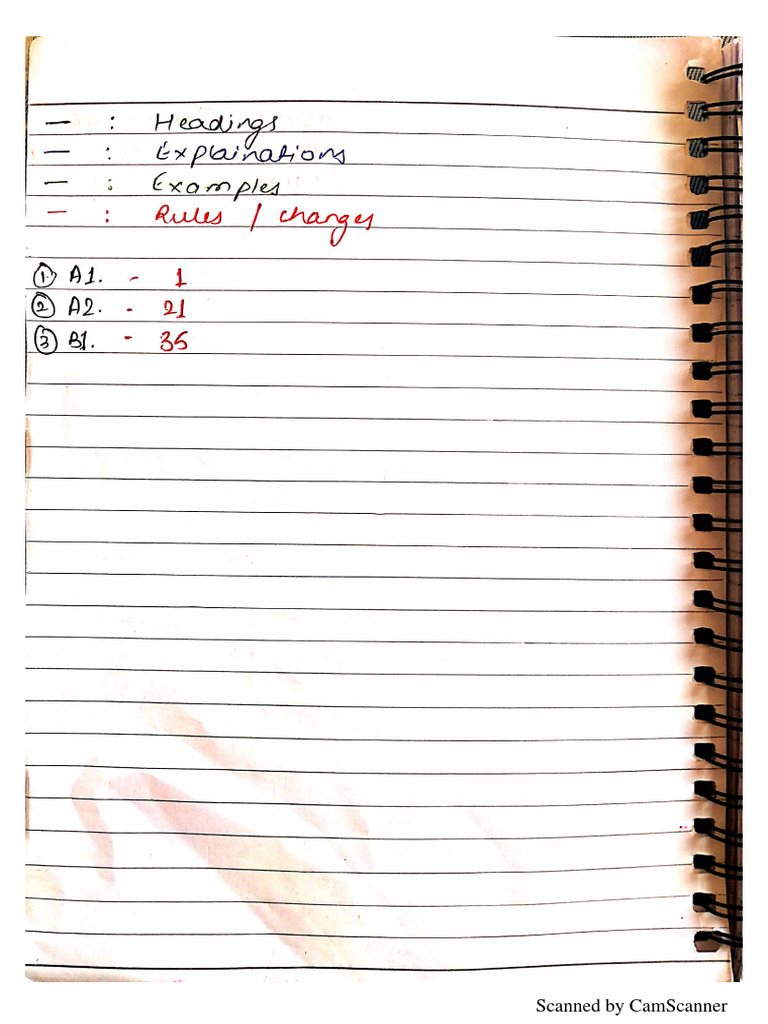 — : Headings
— : Explainations
— : Examples
— : Rules / changes
① A1. - 1
② A2. - 21
③ B1. - 35
Scanned by CamScanner